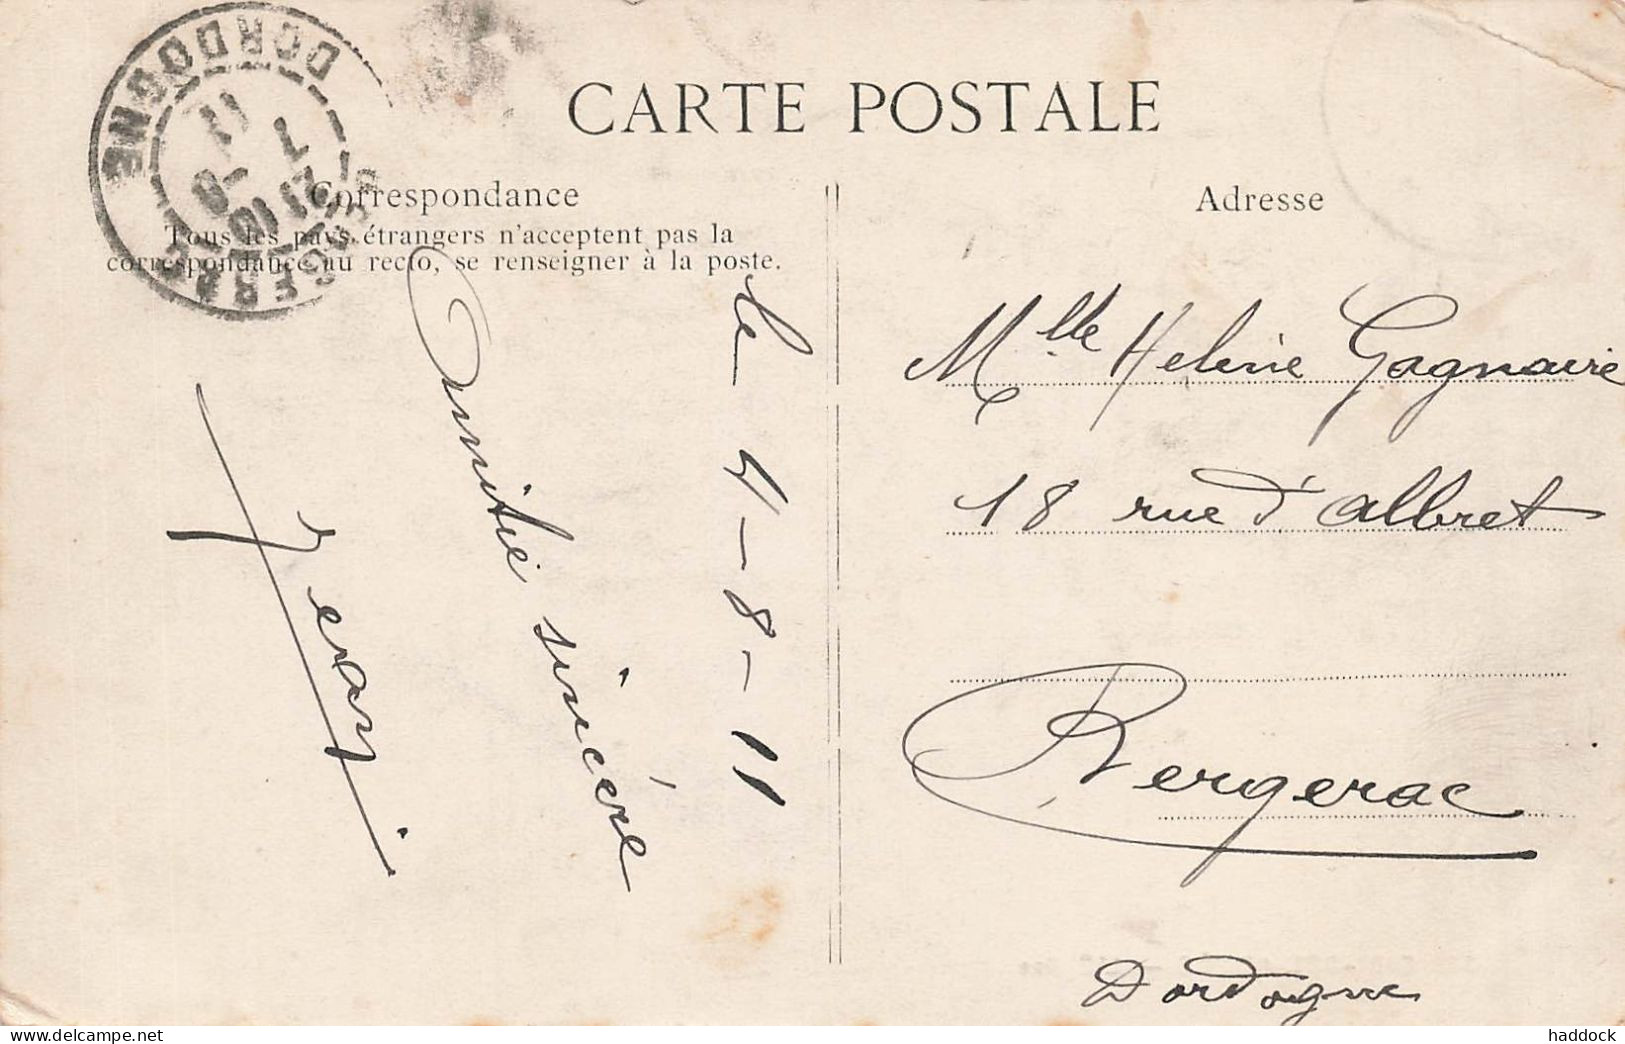 CARTE POSTALE
Correspondance
Tous les pays étrangers n'acceptent pas la
correspondance au recto, se renseigner à la poste.
Adresse
DORDOGNE
BERGERAC
7 - 8
11
le 4-8-11
Amitié sincère
Jean
Mlle Helene Gagnaire
18 rue d'albret
Bergerac
Dordogne
haddock